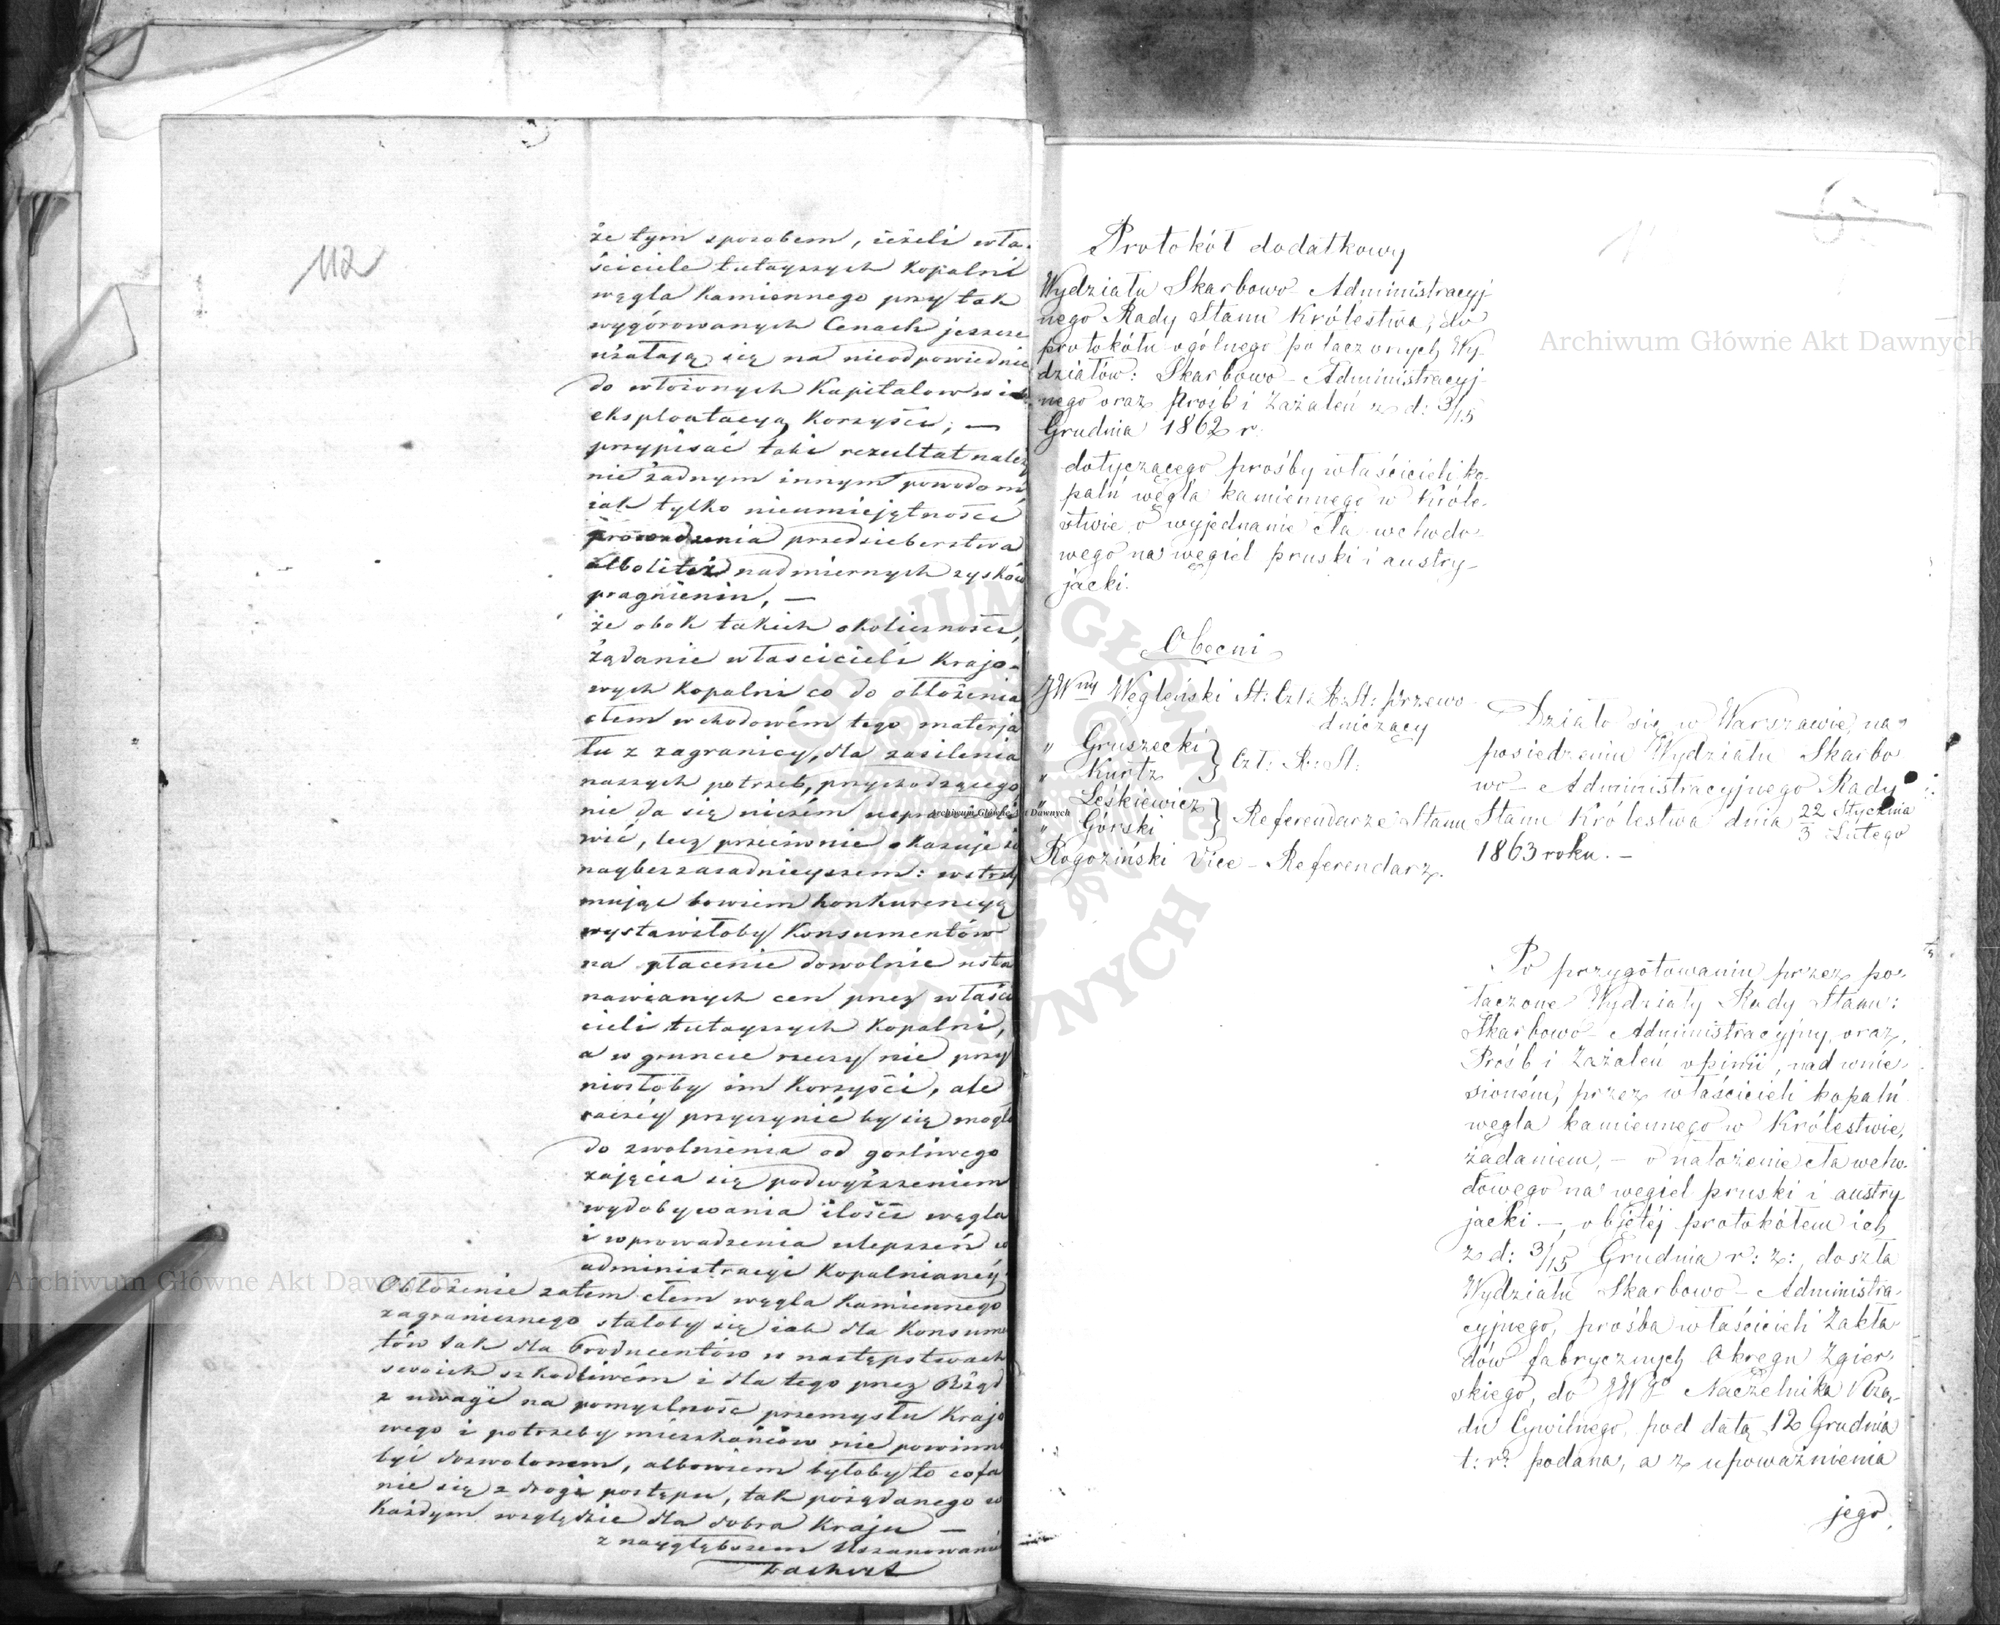 112
że tym sposobem, jeżeli wła-
ściciele tutayszych Kopalni
węgla Kamiennego przy tak
wygórowanych Cenach jeszcze
użalają się na nieodpowiednie
do włożonych Kapitałów
eksploatacyą Korzyści, —
przypisać taki rezultat należy
nie żadnym innym powodom
jak tylko nieumiejętności
prowadzenia przedsieberstwa
albo też nadmiernych zysków
pragnieniu, —
że obok takich okoliczności,
żądanie właścicieli Krajo-
wych Kopalni co do obłożenia
cłem wchodowém tego materja
łu z zagranicy, dla zasilenia
naszych potrzeb, przychodzącego,
nie da się niczém usprawiedli
wić, lecz przeciwnie okazuje się
naybezzasadnieyszem: wstrzy
mując bowiem konkurencyą
wystawiłoby Konsumentów
na płacenie dowolnie usta
nawianych cen przez właści
cieli tutayszych Kopalni,
a w gruncie rzeczy nie przy
niosłoby im Korzyści, ale
raczéy przyczynić by się mogło
do zwolnienia od gorliwego
zajęcia się podwyższeniem
wydobywania ilości węgla
i wprowadzenia ulepszeń w
administracyi Kopalnianéy.
Obłożenie zatem cłem węgla Kamiennego
zagranicznego stałoby się jak dla Konsumen
tów tak dla Producentów w następstwach
swoich szkodliwém i dla tego przez Rząd
z uwagi na pomyslność przemysłu Krajo
wego i potrzeby mieszkańców nie powinno
być dozwolonem, albowiem byłoby to cofa
nie się z drogi postępu, tak pożądanego w
Każdym względzie dla dobra Kraju —
z naygłębszem Uszanowaniem
Protokół dodatkowy
Wydziału Skarbowo Administracyj
nego Rady Stanu Królestwa, do
protokółu ogólnego połączonych Wy-
działów: Skarbowo-Administracyj-
nego oraz Prośb i Zażaleń z d: 3/15
Grudnia 1862 r.
dotyczącego prośby właścicieli ko-
palń węgla kamiennego w Króle-
stwie o wyjednanie cła wchodo-
wego na węgiel pruski i austry-
jacki.
Obecni
JWny Węgleński St: Czł: R: St: przewo
dniczący
" Gruszecki
" Kurtz } Czł: R: St:
" Leśkiewicz
" Górski } Referendarze Stanu
Rogoziński Vice-Referendarz.
Działo się w Warszawie, na
posiedzeniu Wydziału Skarbo
wo-Administracyjnego Rady
Stanu Królestwa dnia 22 Stycznia
3 Lutego
1863 roku. —
Po przygotowaniu przez po-
łączone Wydziały Rady Stanu:
Skarbowo-Administracyjny, oraz
Prośb i Zażaleń opinii, nad wnie-
sioném, przez właścicieli kopalń
węgla kamiennego w Królestwie,
żądaniem, — o nałożenie cła wcho-
dowego na węgiel pruski i austry
jacki —, objętéj protokółem ich
z d: 3/15 Grudnia r: z:, doszła
Wydziału Skarbowo-Administra-
cyjnego, prośba właścicieli Zakła-
dów fabrycznych Okręgu Zgier-
skiego, do JWgo Naczelnika Rzą-
du Cywilnego, pod datą 12 Grudnia
t: r: podana, a z upoważnienia
jego
Archiwum Główne Akt Dawnych
Archiwum Główne Akt Dawnych
Archiwum Główne Akt Dawnych